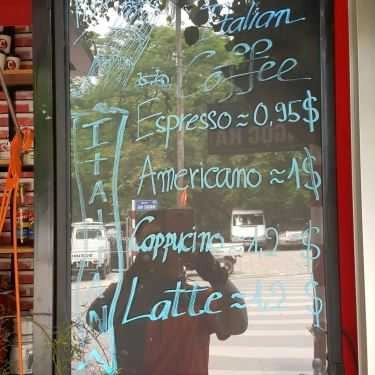 Italian
Coffee
Espresso ≈ 0,95$
Americano ≈ 1$
Cappucino ≈ 1.2 $
Latte ≈ 1,2 $
ITALIANN